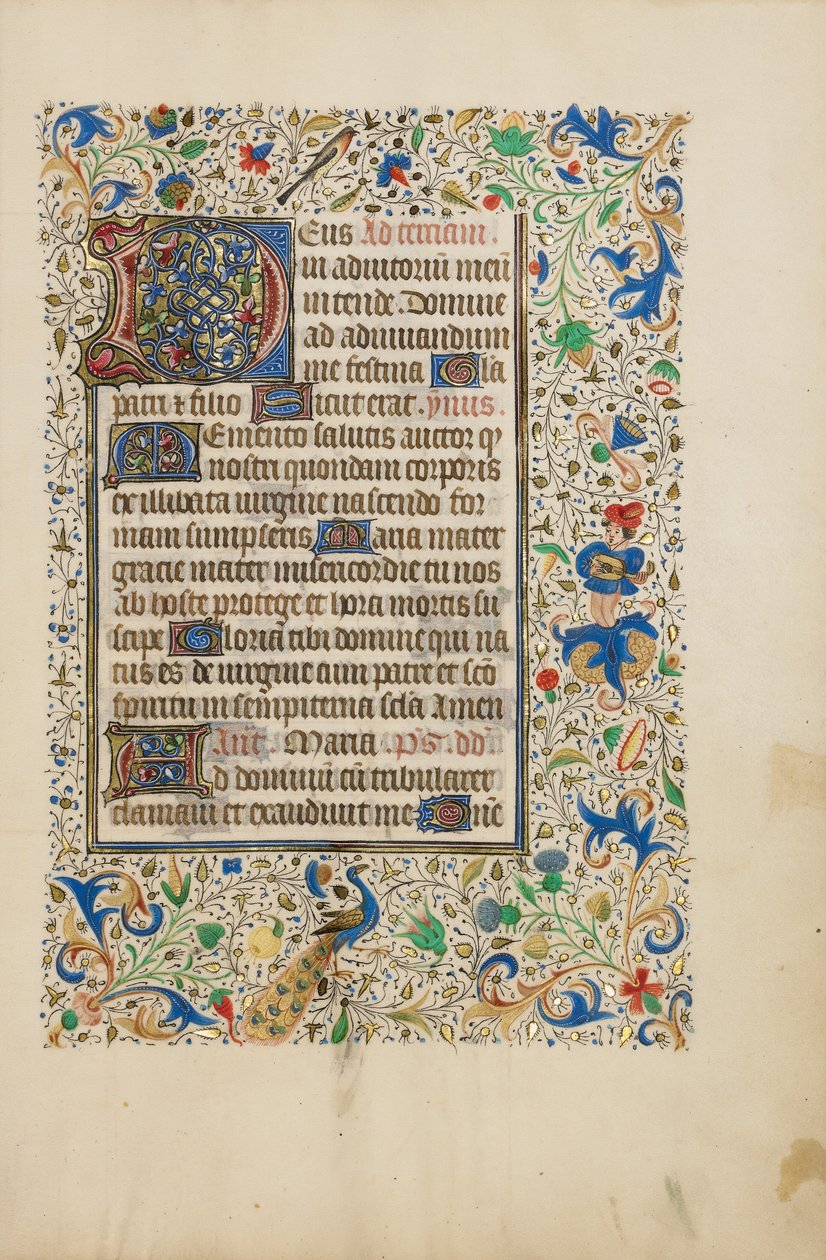 Deus Ad terciam.
in adiutoriū meū
intende. Domine
ad adiuuandum
me festina Gl'a
patri & filio Sicut erat. ynus.
Memento salutis auctor qꝫ
nostri quondam corporis
ex illibata uirgine nascendo for
mam sumpseris Maria mater
gracie mater misericordie tu nos
ab hoste protege et hora mortis su
scipe Gloria tibi domine qui na
tus es de uirgine cum patre et sc̄o
spiritu in sempiterna sc̄la Amen
Añt. Maria. p̄s. dd̄
Ad dominū cū tribularer
clamaui et exaudiuit me Dn̄e